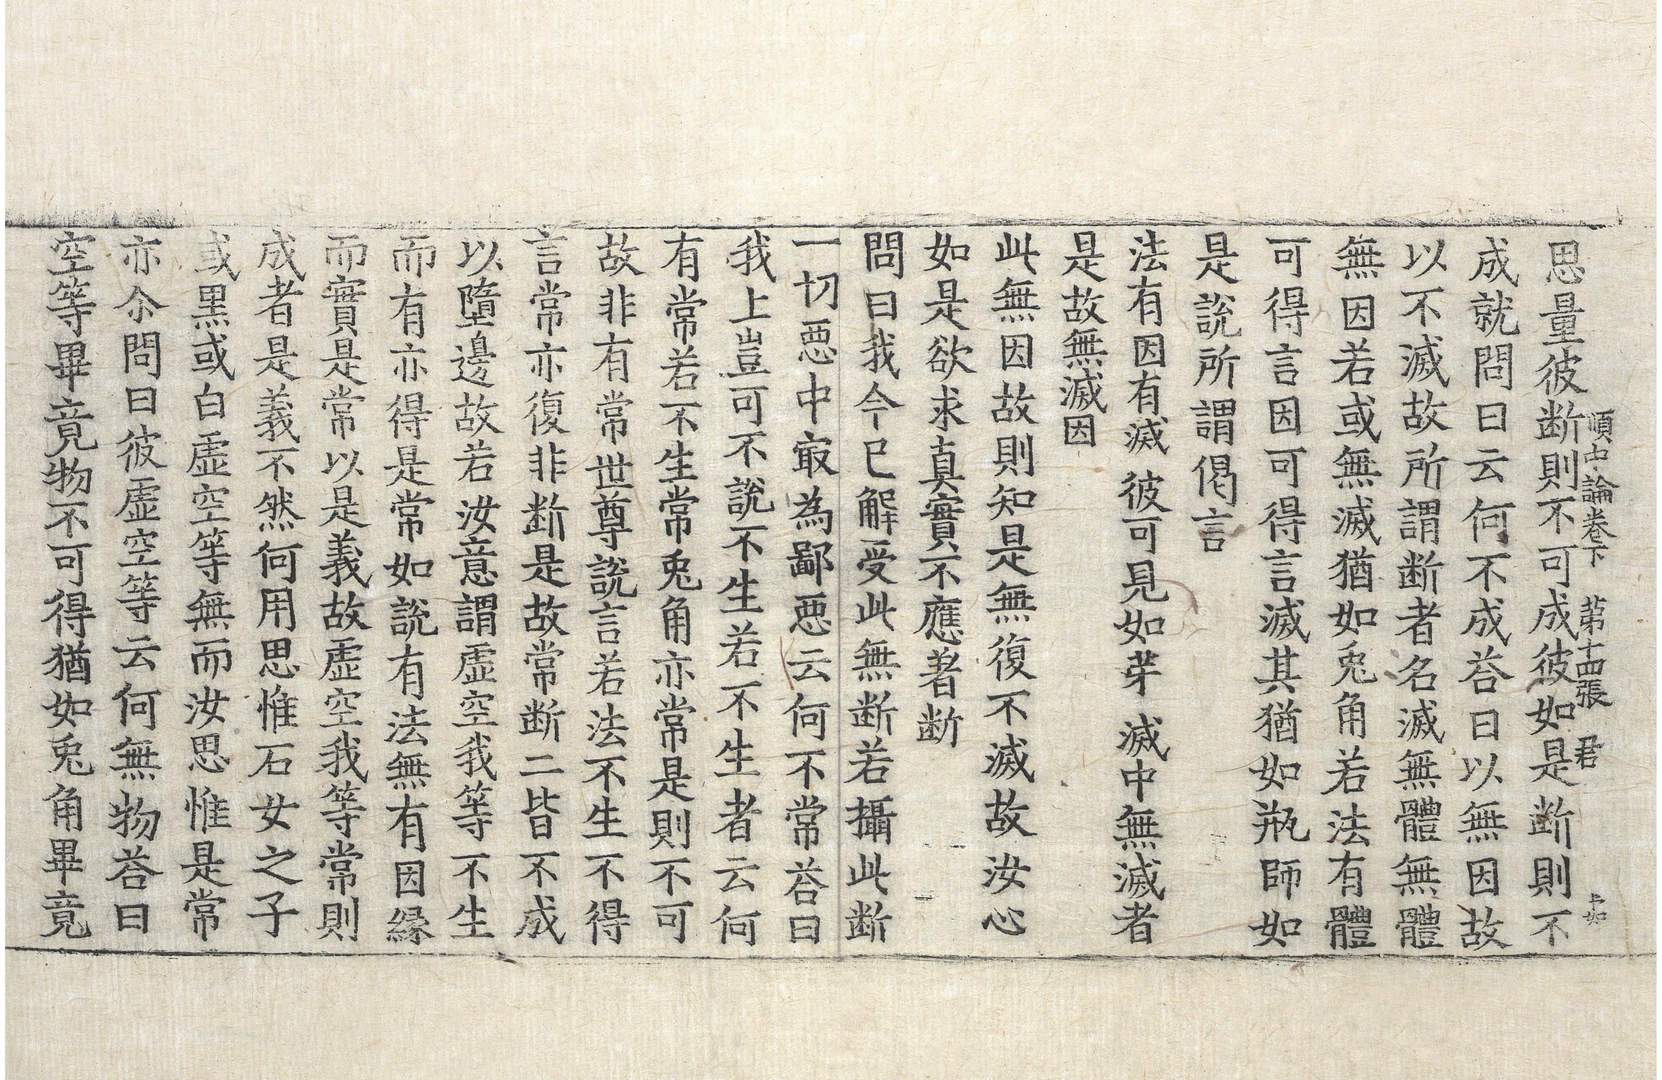 順中論卷下 第十四張 君
思量彼断則不可成彼如是断則不
成就問曰云何不成荅曰以無因故
以不滅故所謂断者名滅無體無體
無因若或無滅猶如兎角若法有體
可得言因可得言滅其猶如瓶師如
是說所謂偈言
法有因有滅 彼可見如芽 滅中無滅者
是故無滅因
此無因故則知是無復不滅故汝心
如是欲求真實不應著断
問曰我今已解受此無断若攝此断
一切惡中㝡為鄙惡云何不常荅曰
我上豈可不說不生若不生者云何
有常若不生常兎角亦常是則不可
故非有常世尊說言若法不生不得
言常亦復非断是故常断二皆不成
以墮邊故若汝意謂虛空我等不生
而有亦得是常如說有法無有因緣
而實是常以是義故虛空我等常則
成者是義不然何用思惟石女之子
或黑或白虛空等無而汝思惟是常
亦尒問曰彼虛空等云何無物荅曰
空等畢竟物不可得猶如兎角畢竟